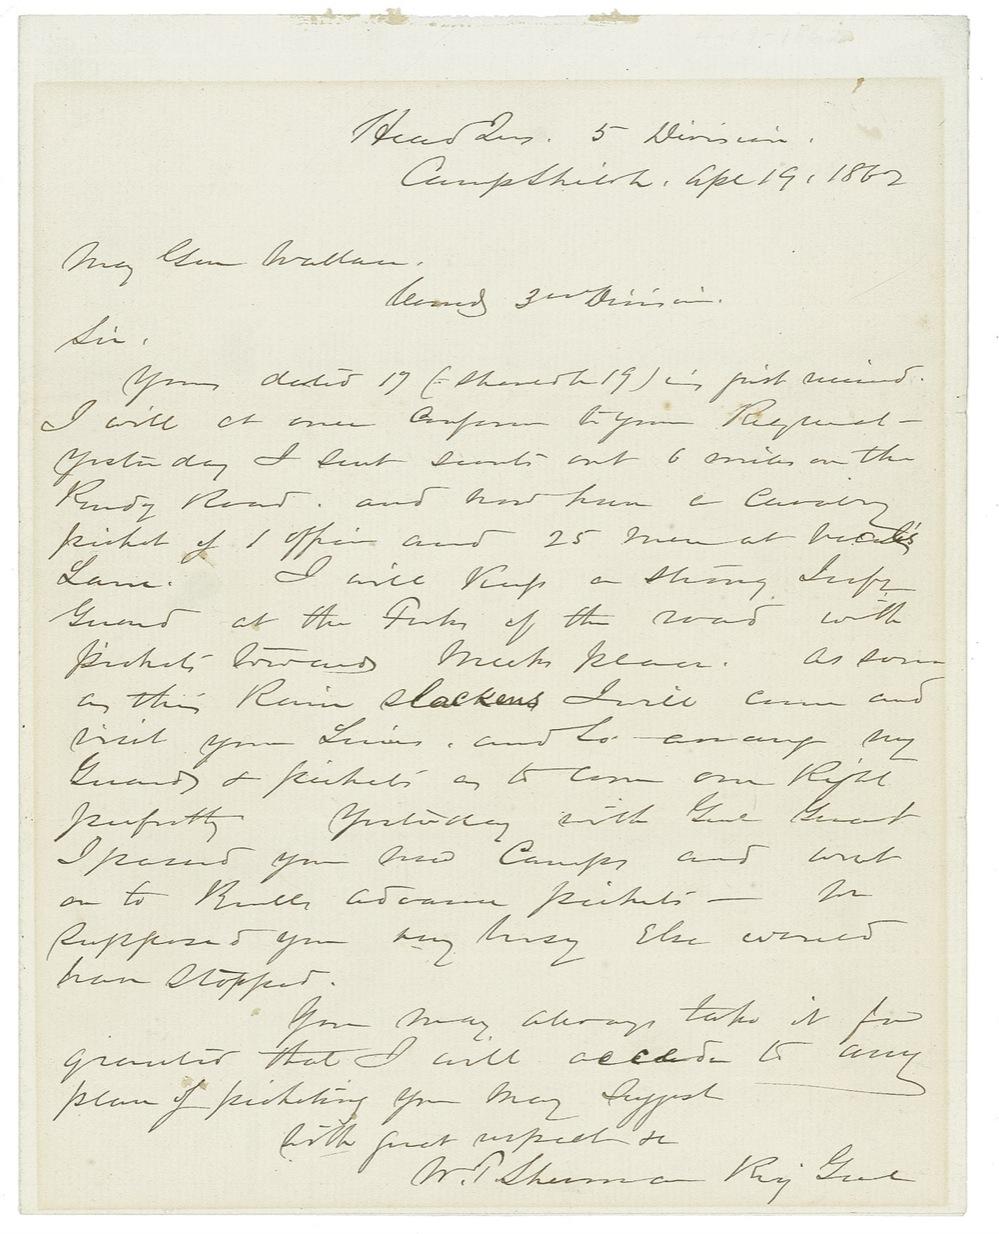 Head Qrs. 5 Division.
Camp Shiloh, Apl 19, 1862
Maj Genl Wallace.
Comdg 3rd Division.
Sir,
Yours dated 17 (- should be 19) is just received.
I will at once conform to your Request -
Yesterday I sent scouts out 6 miles on the
Purdy Road. and now have a Cavalry
picket of 1 officer and 25 men at
Lane. I will Keep a strong Infy
Guard at the Forks of the road with
pickets towards Meeks place. As soon
as this Rain slackens I will come and
visit your Lines, and so arrange my
Guards & pickets as to cover our Right
perfectly Yesterday with Genl Grant
I passed your new Camps and went
on to Buells advance pickets — We
supposed you very busy Else would
have stopped.
You may always take it for
granted that I will accede to any
plan of picketing you may suggest
With great respect &c
W. T. Sherman Brig Genl